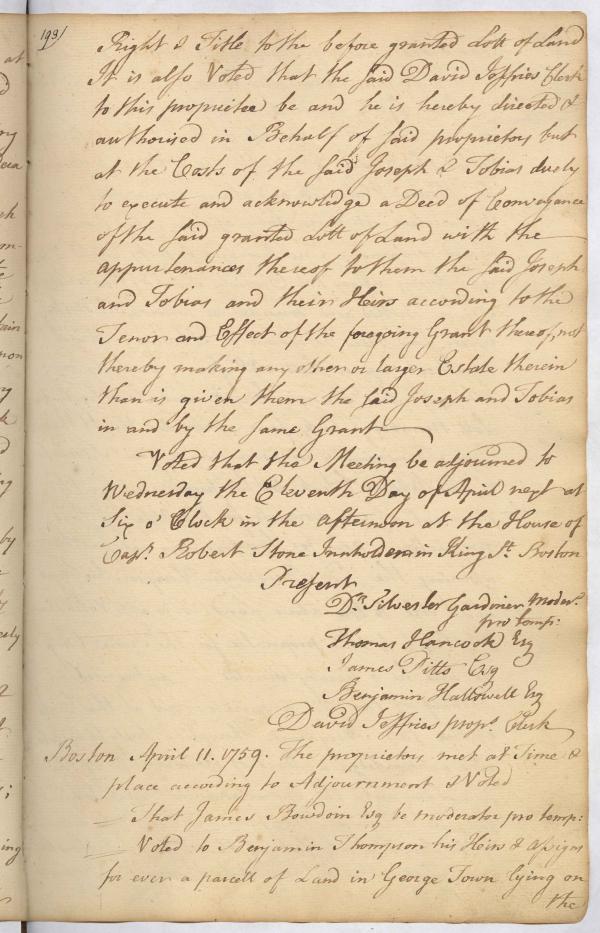 193/
Right & Title to the before granted Lott of Land
It is also Voted that the said David Jeffries Clerk
to this proprietee be and he is hereby directed &
authorised in Behalf of said proprietors but
at the Costs of the said Joseph & Tobias duely
to execute and acknowlidge a Deed of Conveyance
of the said granted Lott of Land with the
appurtenances thereof to them the said Joseph
and Tobias and their Heirs according to the
Tenor and Effect of the foregoing Grant thereof, not
thereby making any other or larger Estate therein
than is given them the said Joseph and Tobias
in and by the same Grant
Voted that the Meeting be adjourned to
Wednesday the Eleventh Day of April next at
Six o' Clock in the afternoon at the House of
Capt. Robert Stone Innholder in King St. Boston
Present
Dr. Silvester Gardiner moder.
pro temp:
Thomas Hancock Esq
James Pitts Esq
Benjamin Hallowell Esq
David Jeffries propr. Clerk
Boston April 11. 1759. The proprietors met at Time &
place according to Adjournment & Voted
That James Bowdoin Esq be moderator pro temp:
Voted to Benjamin Thompson his Heirs & assigns
for ever a parcell of Land in George Town lying on
the